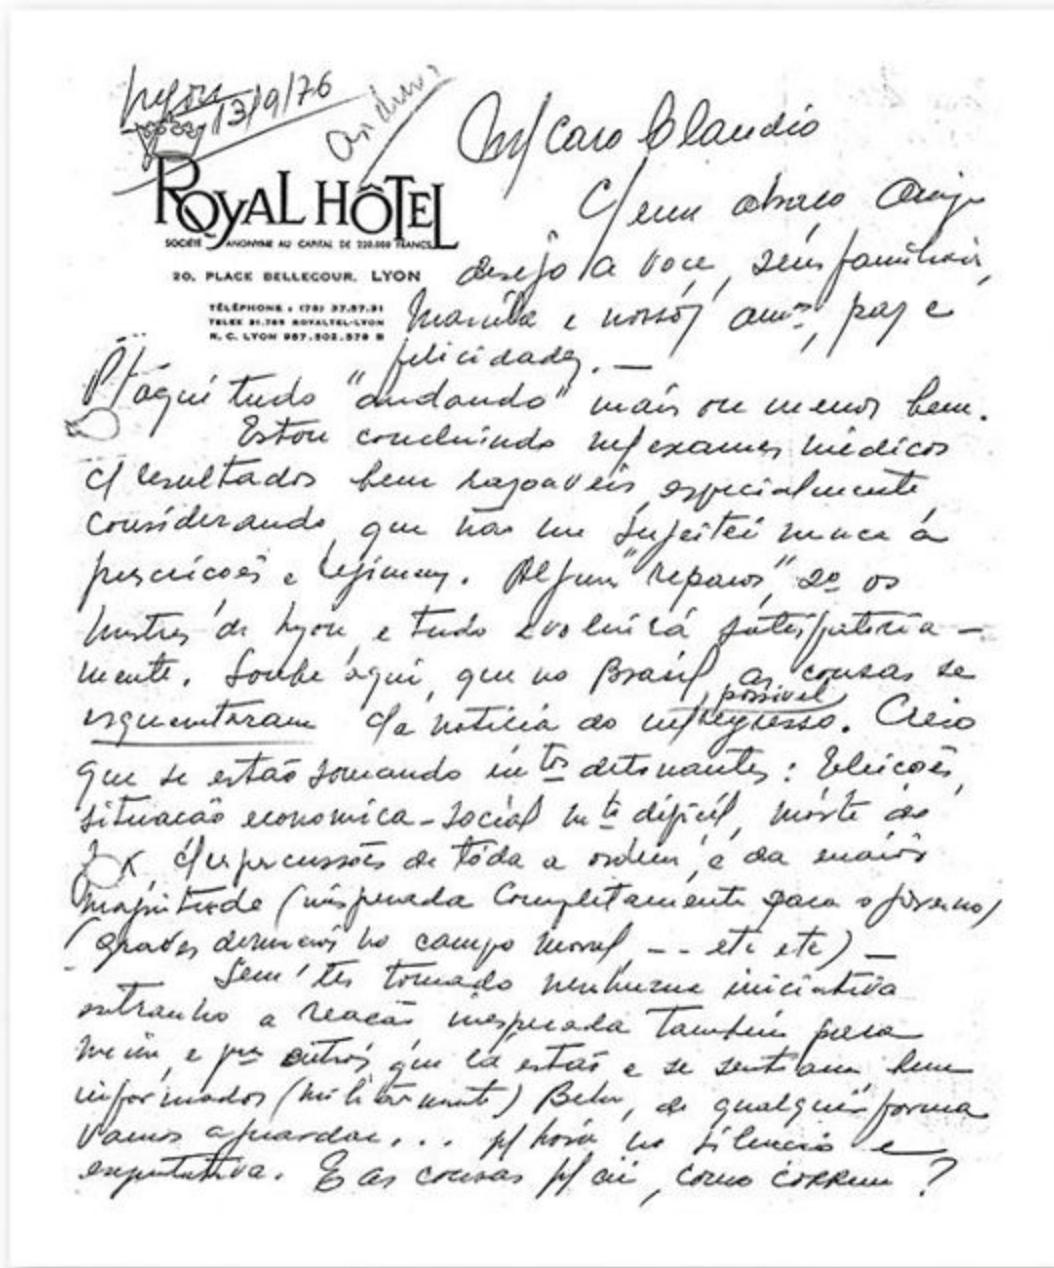 Lyon 13/9/76
M/ caro Claudio
ROYAL HÔTEL
SOCIÉTÉ ANONYME AU CAPITAL DE 220.000 FRANCS
20, PLACE BELLECOUR, LYON
TÉLÉPHONE : (78) 37.57.31
TELEX 31.785 ROYALTEL-LYON
R. C. LYON 957.502.579 B
C/ um abraço amigo
desejo a você, seus familiares,
e nossos amos, paz e
felicidades. —
P/ aqui tudo "andando" mais ou menos bem.
Estou concluindo m/ exames médicos
c/ resultados bem razoáveis, especialmente,
considerando, que não me sujeitei nunca à
prescrições e regimens. Alguns "reparos", 2º os
mestres de Lyon, e tudo evoluirá satisfatoria-
mente. Soube aqui, que no Brasil, as cousas se
esquentaram c/ a notícia do m/ possível regresso. Creio
que se estão somando mtos detonantes: Eleições,
situação economica-social mto dificil, morte do
JK, c/ repercussões de tôda a ordem, e da maior
magnitude (inesperada completamente para o governo)
(graves denuncias no campo moral, -- etc etc) —
Sem ter tomado nenhuma iniciativa
estranho a reação inesperada também para
mim, e pra outros que lá estão e se sentiam bem
informados (militarmente) Bem, de qualquer forma
vamos aguardar... p/ hora no silencio e
expectativa. E as cousas p/ ai, como correm?